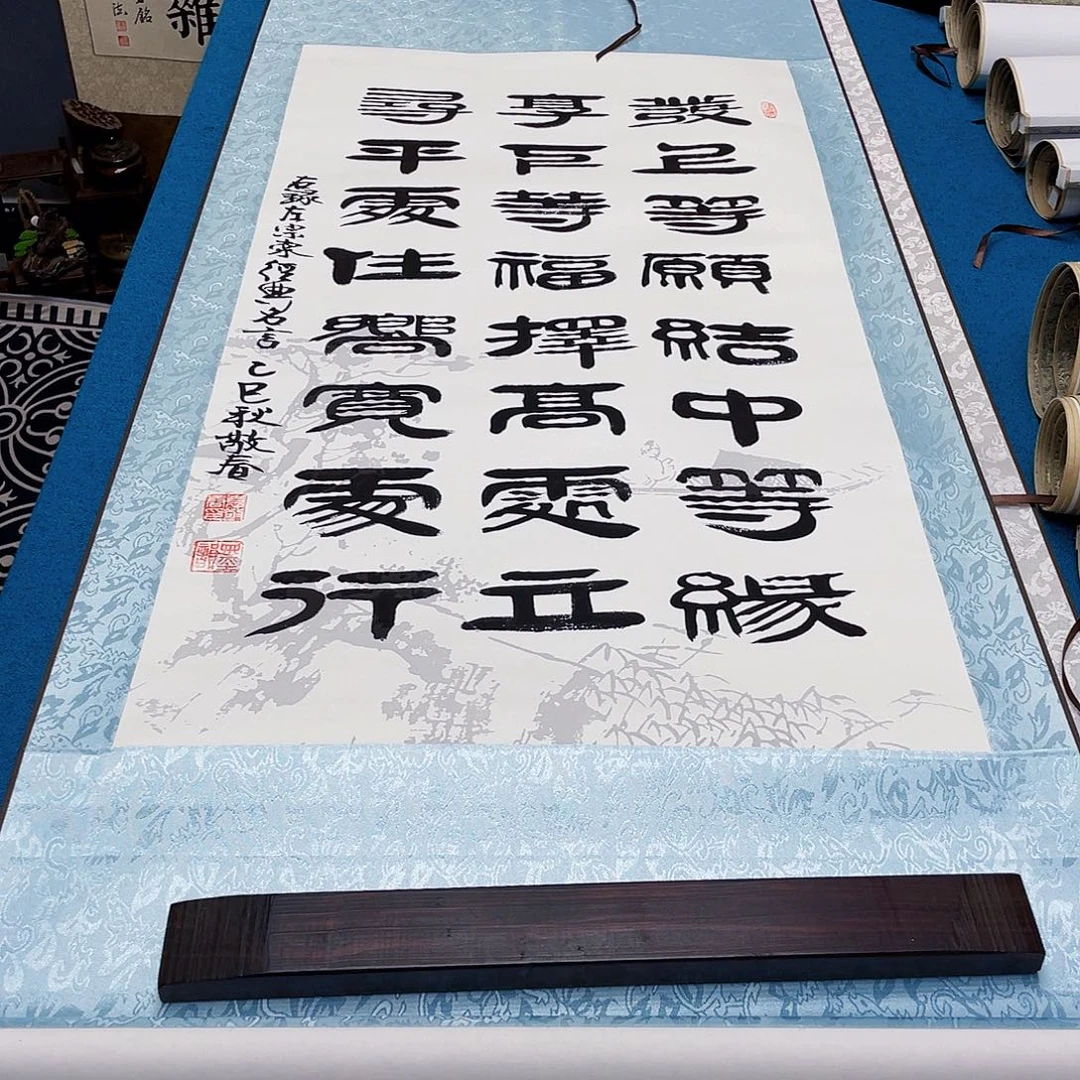 發上等願結中等緣
享下等福擇高處立
尋平處住嚮寬處行
右錄左宗棠經典名言 乙巳秋敬春
雜
銘